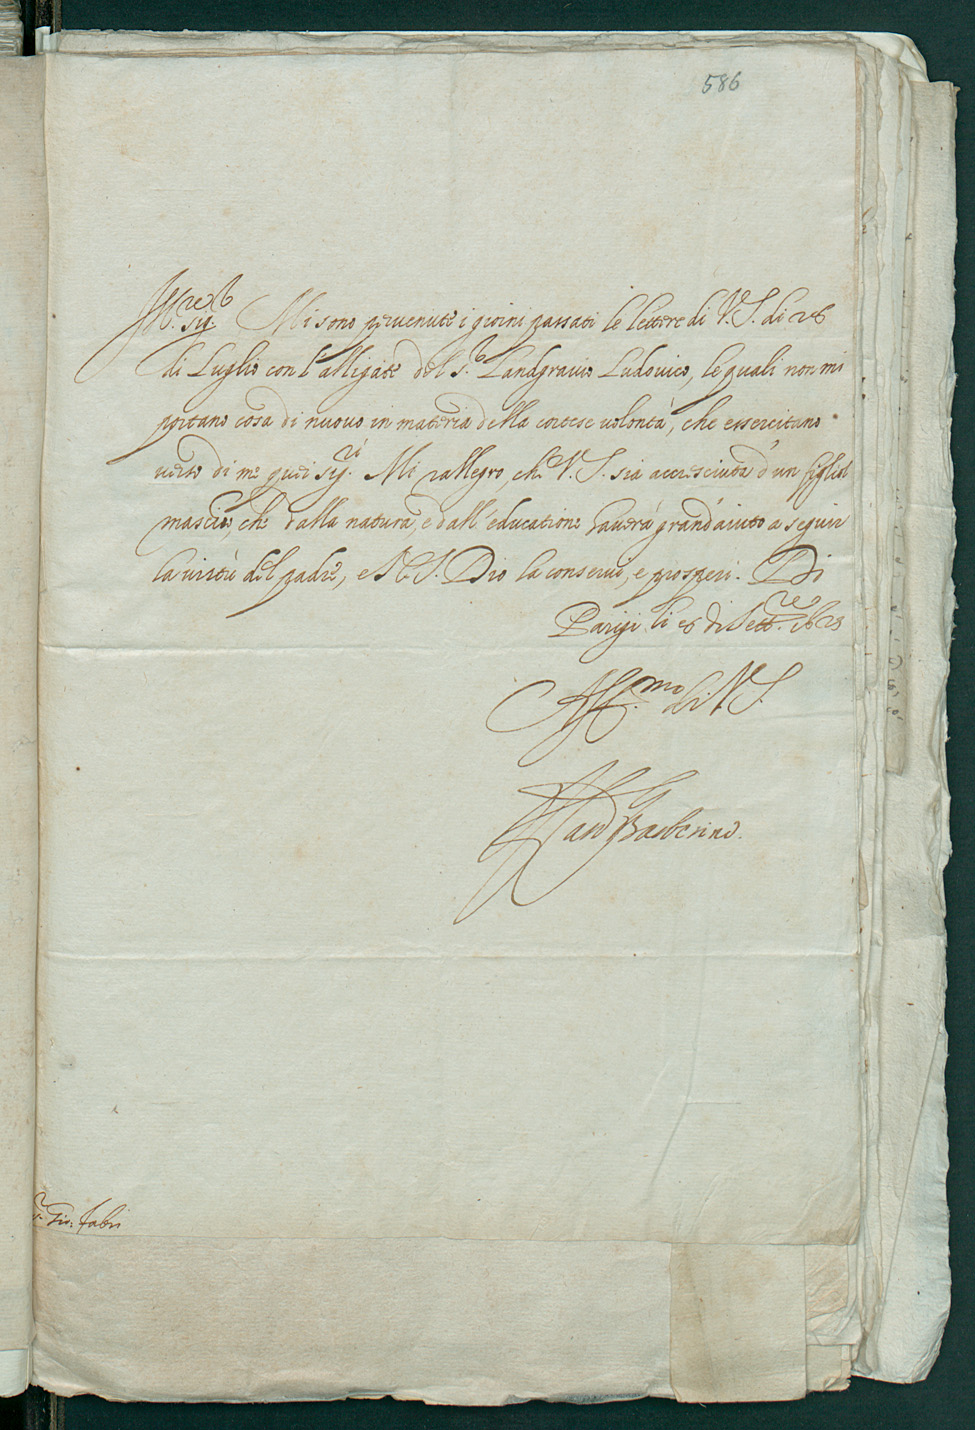 586
M.re Sig.r Mi sono pervenute i giorni passati le lettere di V.S. di 26
di Luglio con l'alligate del S.r Landgravio Ludovico, le quali non mi
portano cosa di nuovo in materia della cortese volontà, che essercitano
verso di me quei Sig.ri Mi rallegro che V.S. sia accresciuta d'un figliol
maschio, che dalla natura, e dall'educatione haverà grand'aiuto a seguir
la virtù del padre, e N.S. Dio la conservi, e prosperi. Di
Parigi li di Sett.re
Aff.mo di V.S.
Barberino.
Gio: Fabri